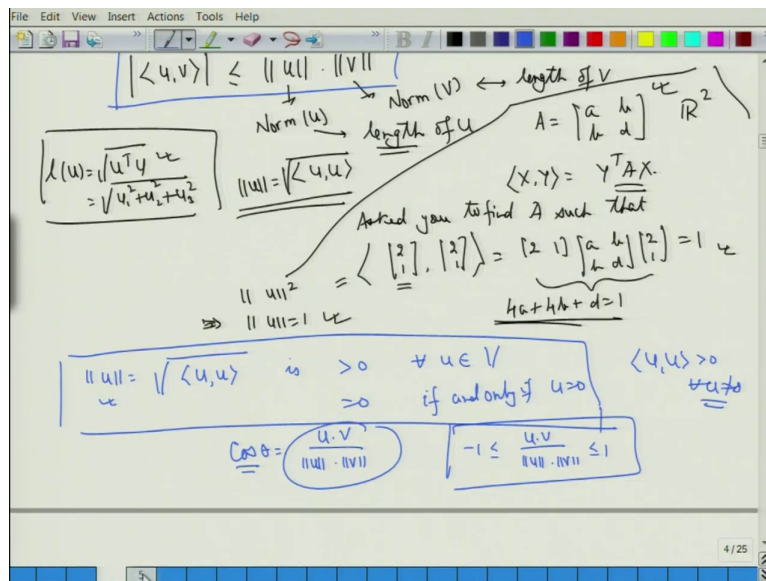 File Edit View Insert Actions Tools Help
|<u,v>| ≤ ||u|| . ||v||
Norm(u) Norm(V) ↔ length of V
length of u
l(u) = √(uᵀu)
= √(u₁² + u₂² + u₃²)
||u|| = √<u,u>
A = [a b
b d] ℝ²
<X,Y> = YᵀAX.
Asked you to find A such that
||u||² = <[2
1], [2
1]> = [2 1] [a b
b d] [2
1] = 1
4a+4b+d=1
⇒ ||u||=1
||u|| = √<u,u> is >0 ∀ u ∈ V
=0 if and only if u=0
<u,u> >0
∀ u≠0
Cos θ = u.v / ||u|| . ||v||
-1 ≤ u.v / ||u|| . ||v|| ≤ 1
4/25
5